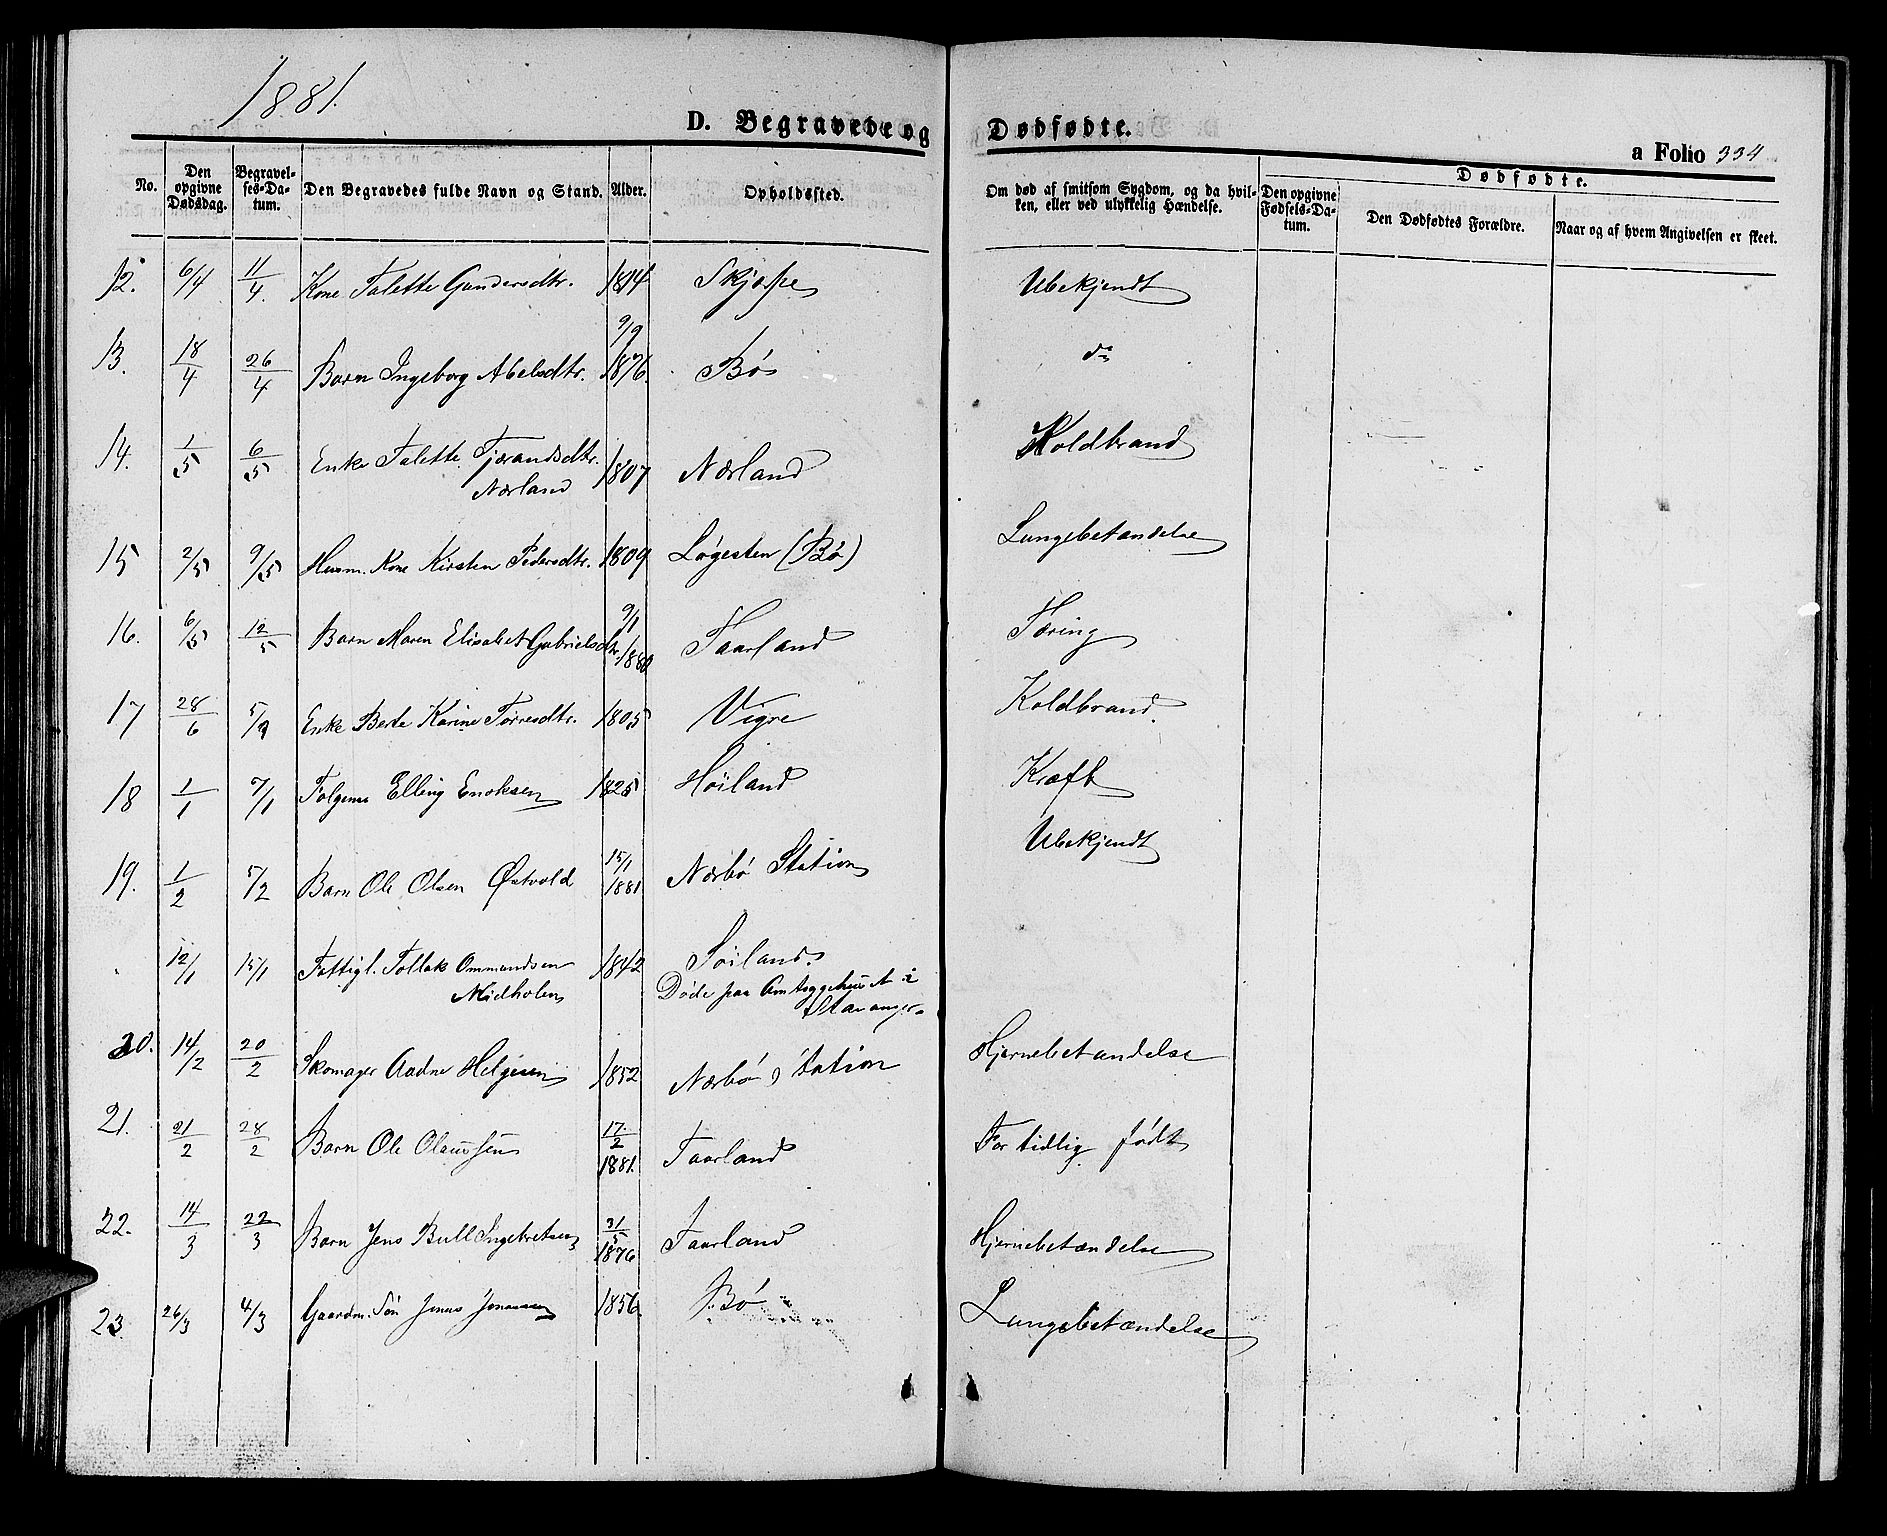 1881.
D. Begravede og Dødfødte.
a Folio 334
No. Den opgivne Dødsdag. Begravelses-Datum. Den Begravedes fulde Navn og Stand. Alder. Opholdssted. Om død af smitsom Sygdom, og da hvilken, eller ved ulykkelig Hændelse. Dødfødte. Den opgivne Fødsels-Datum. Den Dødfødtes Forældre. Naar og af hvem Angivelsen er skeet.
12. 6/4 11/4. Kone Talette Gundersdtr. 1814 Skjærpe Ubekjendt
13. 18/4 26/4 Barn Ingeborg Abelsdtr. 9/9 1876. Bø do
14. 1/5 6/5 Enke Talette Tjerandsdtr. 1807 Nærland Koldbrand
Nærland
15 2/5 9/5 Husm. Kone Kirsten Pedersdtr. 1809 Løgesten (Bø) Lungebetændelse
16. 6/5 12/5 Barn Maren Elisabet Gabrielsdtr. 9/1 1880 Taarland Tæring
17 28/6 5/9 Enke Berte Karine Torresdtr. 1805 Vigre Koldbrand.
18 1/1 7/1 Folgem. Elling Enoksen 1825 Høiland Kræft
19. 1/2 7/2 Barn Ole Olsen Østvold 15/1 1881. Nærbø Station Ubekjendt
12/1 15/1 Fattigl. Tollak Ommundsen 1842 Søiland.
Midholen Døde paa Amtsygehuset i
Stavanger.
20. 14/2 20/2 Skomager Aadne Helgesen 1852 Nærbø Station Hjernebetændelse
21. 21/2 28/2 Barn Ole Olaussen 17/2 1881. Taarland For tidlig født
22. 14/3 22/3 Barn Jens Bull Ingebretsen 31/5 1876 Taarland Hjernebetændelse
23 26/3 4/3 Gaardm. Søn Jonas Jonassen 1856. Bø Lungebetændelse